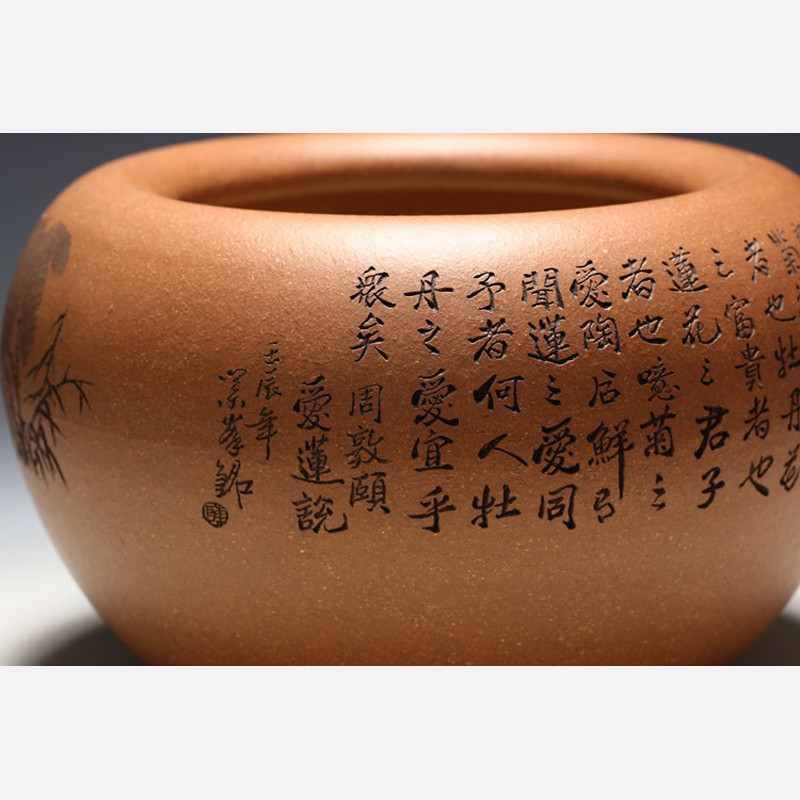 菊
者也牡丹花
之富貴者也
蓮花之君子
者也噫菊之
愛陶后鮮有
聞蓮之愛同
予者何人牡
丹之愛宜乎
衆矣 周敦頤
愛蓮説
壬辰年
峯